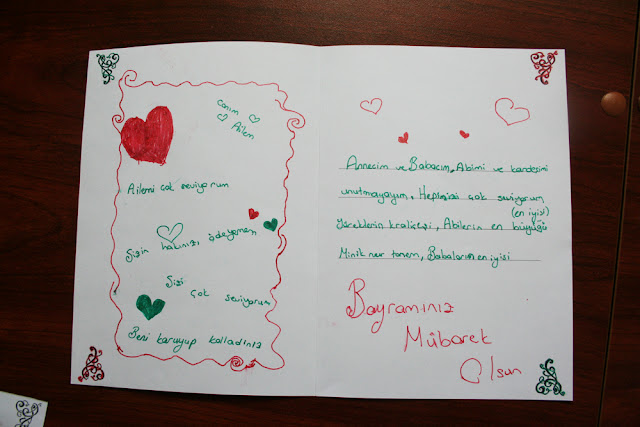 Canım
Ailem
Ailemi çok seviyorum
Sizin hakınızı ödeyemem
Sizi
çok seviyorum
Beni koruyup kolladınız
Annecim ve Babacım, Abimi ve kardeşimi
unutmayayım, Hepinizi çok seviyorum
(en iyisi)
Yüreklerin kraliçesi, Abilerin en büyüğü
Minik nur tanem, Babaların en iyisi
Bayramınız
Mübarek
Olsun